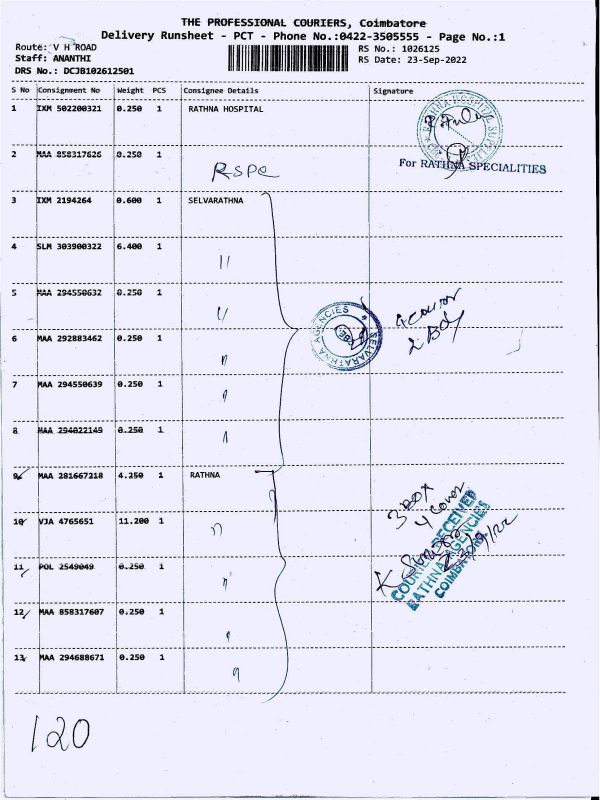 THE PROFESSIONAL COURIERS, Coimbatore
Delivery Runsheet - PCT - Phone No.:0422-3505555 - Page No.:1
Route: V H ROAD
RS No.: 1026125
Staff: ANANTHI
RS Date: 23-Sep-2022
DRS No.: DCJB102612501
S No Consignment No Weight PCS Consignee Details Signature
1 IXM 502200321 0.250 1 RATHNA HOSPITAL
RATHNA HOSPITAL
2 MAA 858317626 0.250 1 RSPC
For RATHNA SPECIALITIES
3 IXM 2194264 0.600 1 SELVARATHNA
4 SLM 303900322 6.400 1 "
5 MAA 294550632 0.250 1 "
SELVARATHNA AGENCIES
4 COVER
2 BOX
6 MAA 292883462 0.250 1 "
7 MAA 294550639 0.250 1 "
8 MAA 294022149 0.250 1 "
9 MAA 281667218 4.250 1 RATHNA
3 BOX
4 Cover
10 VJA 4765651 11.200 1 "
COURIER RECEIVED
RATHNA AGENCIES
COIMBATORE
23/9/22
11 POL 2549049 0.250 1 "
12 MAA 858317607 0.250 1 "
13 MAA 294688671 0.250 1 "
120